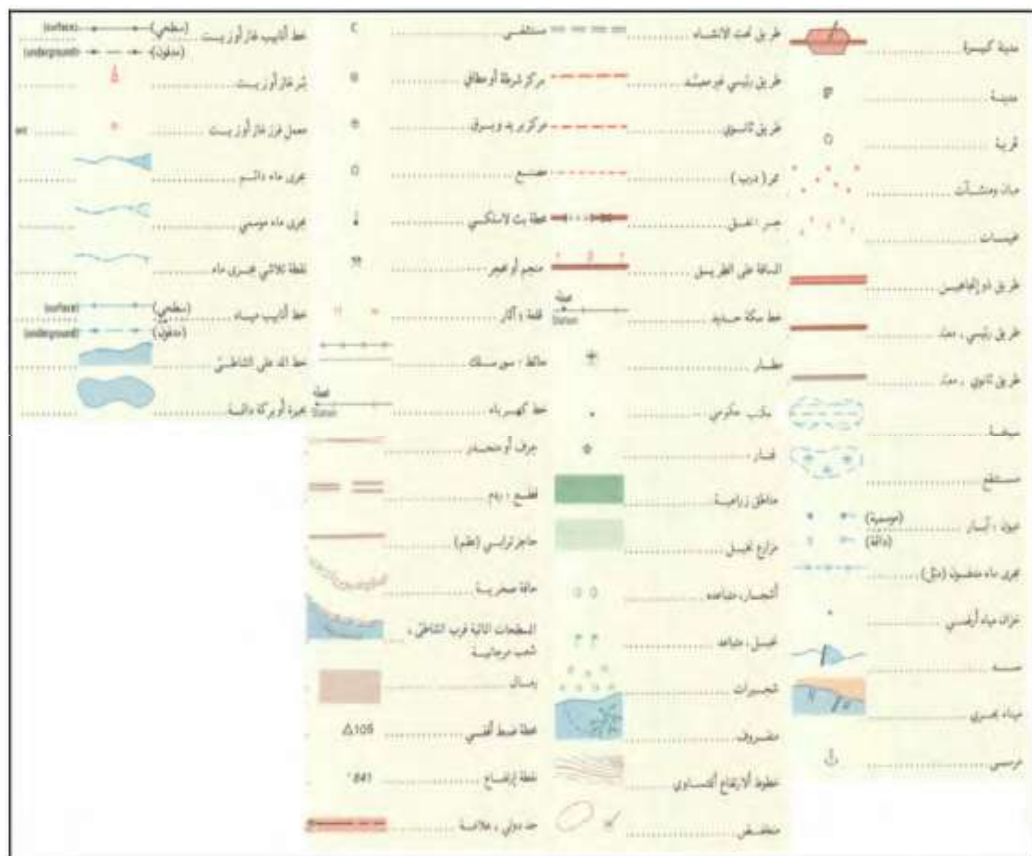 مدينة كبيرة
مدينة
قرية
مبان ومنشآت
مخيمات
طريق ذو إتجاهين
طريق رئيسي ، معبد
طريق ثانوي ، معبد
سبخة
مستنقع
عيون ، آبار (موسمية)
(دائمة)
مجرى ماء مدفون
خزان مياه أرضي
سد
ميناء بحري
مرسى
طريق تحت الانشاء
طريق رئيسي غير معبد
طريق ثانوي
ممر (درب)
جسر ، نفق
المسافة على الطريق
خط سكة حديد
محطة
Station
مطار
مكتب حكومي
فنار
مناطق زراعية
مزارع نخيل
أشجار ، متباعده
نخيل ، متباعد
شجيرات
خطوط ألارتفاع ألمتساوي
منخفض
مستشفى
C
مركز شرطة أو مطافي
مركز بريد وبرق
مصنع
محطة بث لاسلكي
منجم أو محجر
قلعة ؛ آثار
حائط ؛ سور سلك
خط كهرباء
محطة
Station
جرف أو منحدر
قطع ؛ ردم
حاجز ترابي (عقم)
حافة صخرية
المسطحات المائية قرب الشاطئ ،
شعب مرجانية
رمال
محطة ضبط أفقي
Δ105
نقطة إرتفاع
841
حد دولي ، علامة
خط أنابيب غاز أو زيت (سطحي) (surface)
(مدفون) (underground)
بئر غاز أو زيت
معمل فرز غاز أو زيت
مجرى ماء دائم
مجرى ماء موسمي
نقطة تلاشي مجرى ماء
خط أنابيب مياه (سطحي) (surface)
(مدفون) (underground)
خط المد على الشاطئ
بحيرة أو بركة دائمة